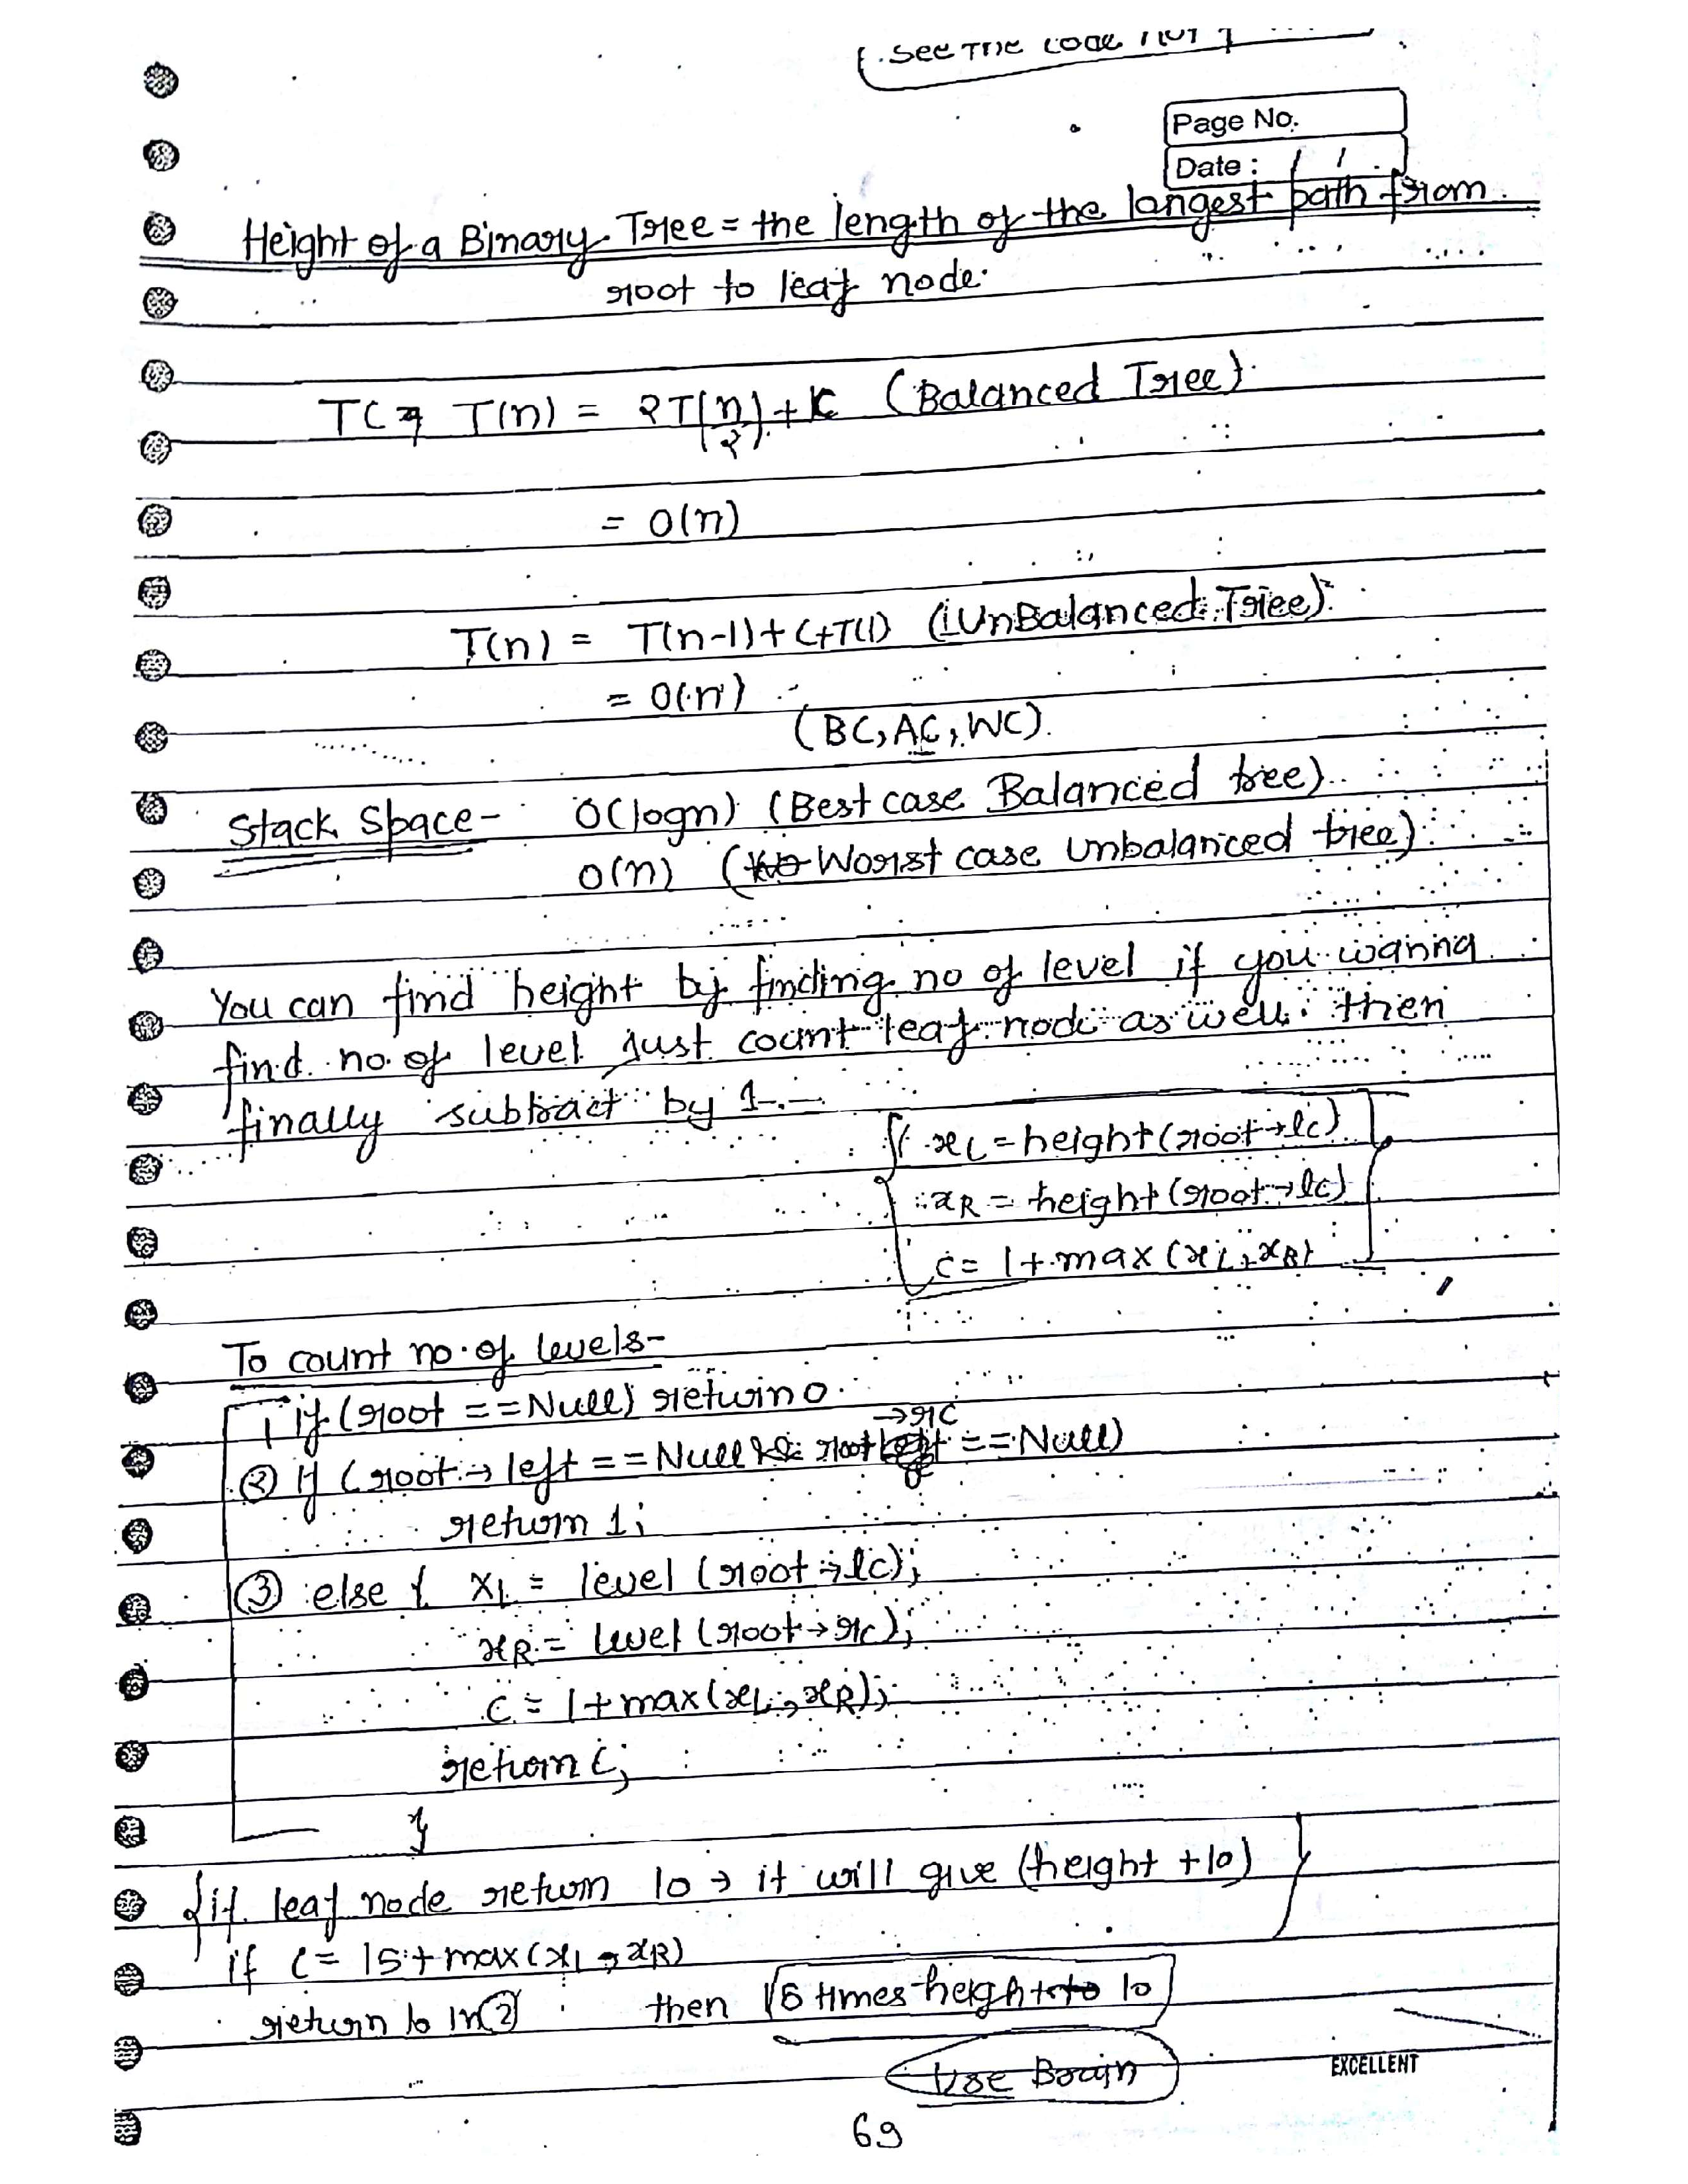 See The code
Page No.
Date : / /
Height of a Binary Tree = the length of the longest path from
root to leaf node.
TC ⇒ T(n) = 2T(n/2) + K (Balanced Tree)
= O(n)
T(n) = T(n-1) + C + T(1) (UnBalanced Tree)
= O(n)
(BC, AC, WC)
Stack Space - O(logn) (Best case Balanced tree)
O(n) (Worst case Unbalanced tree)
You can find height by finding no of level if you wanna
find no. of level just count leaf node as well then
finally subtract by 1.
xL = height(root→lc)
xR = height(root→lc)
c = 1 + max(xL, xR)
To count no. of levels -
1 if (root == Null) return 0
→rc
② If (root → left == Null && root == Null)
return 1;
③ else { xL = level (root→lc);
xR = level (root→rc);
c = 1 + max(xL, xR);
return c;
}
{ if leaf node return 10 → it will give (height + 10) }
if c = 15 + max(xL, xR)
return 10 in ② then 15 times height + 10
Use Brain
EXCELLENT
69